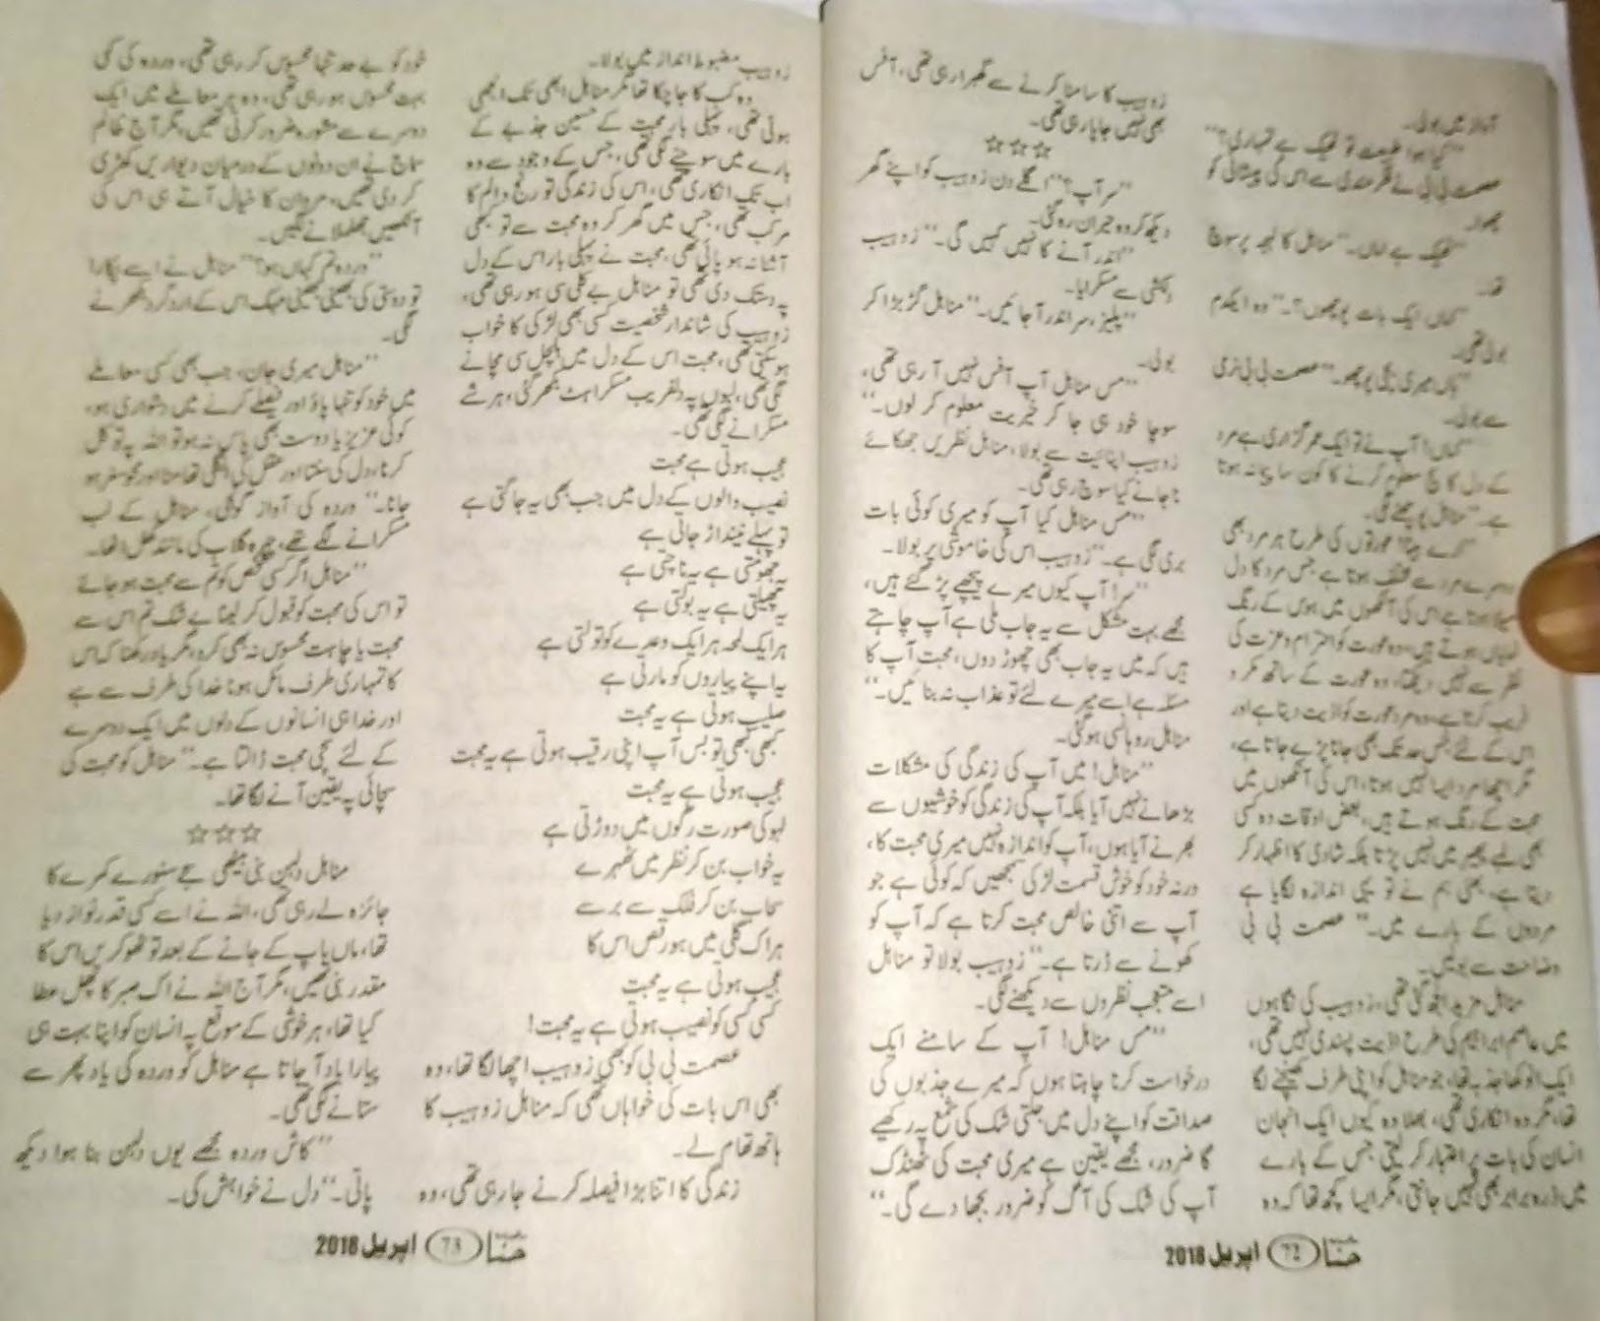 آواز میں بولی۔
”کیا ہوا طبیعت تو ٹھیک ہے تمہاری؟“
عصمت بی بی نے فکرمندی سے اس کی پیشانی کو
چھوا۔
”ٹھیک ہے اماں۔“ مناہل کا لہجہ پرسوچ
تھا۔
”اماں ایک بات پوچھوں؟۔“ وہ ایکدم
بولی تھی۔
”ہاں میری بیٹی پوچھو۔“ عصمت بی بی نرمی
سے بولی۔
”اماں! آپ نے تو ایک عمر گزاری ہے مرد
کے دل کا سچ معلوم کرنے کا کون سا پیمانہ ہوتا
ہے۔“ مناہل پوچھنے لگی۔
”ارے بیٹا! عورتوں کی طرح ہر مرد بھی
دوسرے مرد سے مختلف ہوتا ہے جس مرد کا دل
میلا ہوتا ہے اس کی آنکھوں میں ہوس کے رنگ
نمایاں ہوتے ہیں، وہ عورت کو احترام و عزت کی
نظر سے نہیں دیکھتا، وہ عورت کے ساتھ مکر و
فریب کرتا ہے، وہ مرد عورت کو اذیت دیتا ہے اور
اس کے لئے جس حد تک بھی جانا پڑے جاتا ہے،
مگر اچھا مرد ایسا نہیں ہوتا، اس کی آنکھوں میں
محبت کے رنگ ہوتے ہیں، بعض اوقات وہ کسی
بھی ہیر پھیر میں نہیں پڑتا بلکہ شادی کا اظہار کر
دیتا ہے، بھئی ہم نے تو یہی اندازہ لگایا ہے
مردوں کے بارے میں۔“ عصمت بی بی
وضاحت سے بولیں۔
مناہل مزید الجھ گئی تھی، زوہیب کی نگاہوں
میں عاصم ابراہیم کی طرح اذیت پسندی نہیں تھی،
ایک انوکھا جذبہ تھا، جو مناہل کو اپنی طرف کھینچنے لگا
تھا، مگر وہ انکاری تھی، بھلا وہ کیوں ایک انجان
انسان کی بات پر اعتبار کر لیتی جس کے بارے
میں ذرہ برابر بھی نہیں جانتی، مگر ایسا کچھ تھا کہ وہ
زوہیب کا سامنا کرنے سے گھبرا رہی تھی، آفس
بھی نہیں جا پا رہی تھی۔
☆☆☆
”سر آپ؟“ اگلے دن زوہیب کو اپنے گھر
دیکھ کر وہ حیران رہ گئی۔
”اندر آنے کا نہیں کہیں گی۔“ زوہیب
دلکشی سے مسکرایا۔
”پلیز، سر اندر آ جائیں۔“ مناہل گڑبڑا کر
بولی۔
”مس مناہل آپ آفس نہیں آ رہی تھی،
سوچا خود ہی جا کر خیریت معلوم کر لوں۔“
زوہیب اپنائیت سے بولا، مناہل نظریں جھکائے
نا جانے کیا سوچ رہی تھی۔
”مس مناہل کیا آپ کو میری کوئی بات
بری لگی ہے۔“ زوہیب اس کی خاموشی پر بولا۔
”سر! آپ کیوں میرے پیچھے پڑ گئے ہیں،
مجھے بہت مشکل سے یہ جاب ملی ہے آپ چاہتے
ہیں کہ میں یہ جاب بھی چھوڑ دوں، محبت آپ کا
مسئلہ ہے اسے میرے لئے تو عذاب نہ بنائیں۔“
مناہل روہانسی ہو گئی۔
”مناہل! میں آپ کی زندگی کی مشکلات
بڑھانے نہیں آیا بلکہ آپ کی زندگی کو خوشیوں سے
بھرنے آیا ہوں، آپ کو اندازہ نہیں میری محبت کا،
ورنہ خود کو خوش قسمت لڑکی سمجھیں کہ کوئی ہے جو
آپ سے اتنی خالص محبت کرتا ہے کہ آپ کو
کھونے سے ڈرتا ہے۔“ زوہیب بولا تو مناہل
اسے متعجب نظروں سے دیکھنے لگی۔
”مس مناہل! آپ کے سامنے ایک
درخواست کرنا چاہتا ہوں کہ میرے جذبوں کی
صداقت کو اپنے دل میں جلتی شک کی شمع پہ رکھیے
گا ضرور، مجھے یقین ہے میری محبت کی ٹھنڈک
آپ کی شک کی آگ کو ضرور بجھا دے گی۔“
حنا 72 اپریل 2018
زوہیب مضبوط انداز میں بولا۔
وہ کب کا جا چکا تھا مگر مناہل ابھی تک الجھی
ہوئی تھی، پہلی بار محبت کے حسین جذبے کے
بارے میں سوچنے لگی تھی، جس کے وجود سے وہ
اب تک انکاری تھی، اس کی زندگی تو رنج و الم کا
مرکب تھی، جس میں گھر کر وہ محبت سے تو بھی
آشنا نہ ہو پائی تھی، محبت نے پہلی بار اس کے دل
پہ دستک دی تھی تو مناہل بے کلی سی ہو رہی تھی،
زوہیب کی شاندار شخصیت کسی بھی لڑکی کا خواب
ہو سکتی تھی، محبت اس کے دل میں ہلچل سی مچانے
لگی تھی، لبوں پہ دلفریب مسکراہٹ بکھر گئی، ہر شے
مسکرانے لگی تھی۔
عجیب ہوتی ہے محبت
نصیب والوں کے دل میں جب بھی یہ جاگتی ہے
تو پہلے نیند اڑ جاتی ہے
یہ جھومتی ہے یہ ناچتی ہے
یہ پھیلتی ہے یہ بولتی ہے
ہر ایک لمحہ ہر ایک وعدے کو تولتی ہے
یہ اپنے پیاروں کو مارتی ہے
صلیب ہوتی ہے یہ محبت
کبھی کبھی تو بس آپ اپنی رقیب ہوتی ہے یہ محبت
عجیب ہوتی ہے یہ محبت
لہو کی صورت رگوں میں دوڑتی ہے
یہ خواب بن کر نظر میں ٹھہرے
سحاب بن کر فلک سے برسے
ہر اک گلی میں ہو رقص اس کا
عجیب ہوتی ہے یہ محبت
کسی کسی کو نصیب ہوتی ہے یہ محبت!
عصمت بی بی کو بھی زوہیب اچھا لگا تھا، وہ
بھی اس بات کی خواہاں تھی کہ مناہل زوہیب کا
ہاتھ تھام لے۔
زندگی کا اتنا بڑا فیصلہ کرنے جا رہی تھی، وہ
خود کو بے حد تنہا محسوس کر رہی تھی، وردہ کی کمی
بہت محسوس ہو رہی تھی، وہ ہر معاملے میں ایک
دوسرے سے مشورہ ضرور کرتی تھیں، مگر آج ظالم
سماج نے ان دونوں کے درمیان دیواریں کھڑی
کر دی تھیں، مروان کا خیال آتے ہی اس کی
آنکھیں جھلملانے لگیں۔
”وردہ تم کہاں ہو؟“ مناہل نے اسے پکارا
تو دوستی کی بھینی بھینی مہک اس کے ارد گرد بکھرنے
لگی۔
”مناہل میری جان، جب بھی کسی معاملے
میں خود کو تنہا پاؤ اور فیصلے کرنے میں دشواری ہو،
کوئی عزیز یا دوست بھی پاس نہ ہو تو اللہ پہ توکل
کرنا، دل کی سننا اور عقل کی انگلی تھامنا اور محو سفر ہو
جانا۔“ وردہ کی آواز گونجی، مناہل کے لب
مسکرانے لگے تھے، چہرہ گلاب کی مانند کھل اٹھا۔
”مناہل اگر کسی شخص کو تم سے محبت ہو جائے
تو اس کی محبت کو قبول کر لینا بے شک تم اس سے
محبت یا چاہت محسوس نہ بھی کرو، مگر یاد رکھنا کہ اس
کا تمہاری طرف مائل ہونا خدا کی طرف سے ہے
اور خدا ہی انسانوں کے دلوں میں ایک دوسرے
کے لئے سچی محبت ڈالتا ہے۔“ مناہل کو محبت کی
سچائی پہ یقین آنے لگا تھا۔
☆☆☆
مناہل دلہن بنی بیٹھی سجے سنورے کمرے کا
جائزہ لے رہی تھی، اللہ نے اسے کس قدر نواز دیا
تھا، ماں باپ کے جانے کے بعد تو ٹھوکریں اس کا
مقدر بنی تھیں، مگر آج اللہ نے اک صبر کا پھل عطا
کیا تھا، ہر خوشی کے موقع پہ انسان کو اپنا بہت ہی
پیارا یاد آ جاتا ہے مناہل کو وردہ کی یاد پھر سے
ستانے لگی تھی۔
”کاش وردہ مجھے یوں دلہن بنا ہوا دیکھ
پاتی۔“ دل نے خواہش کی۔
حنا 73 اپریل 2018